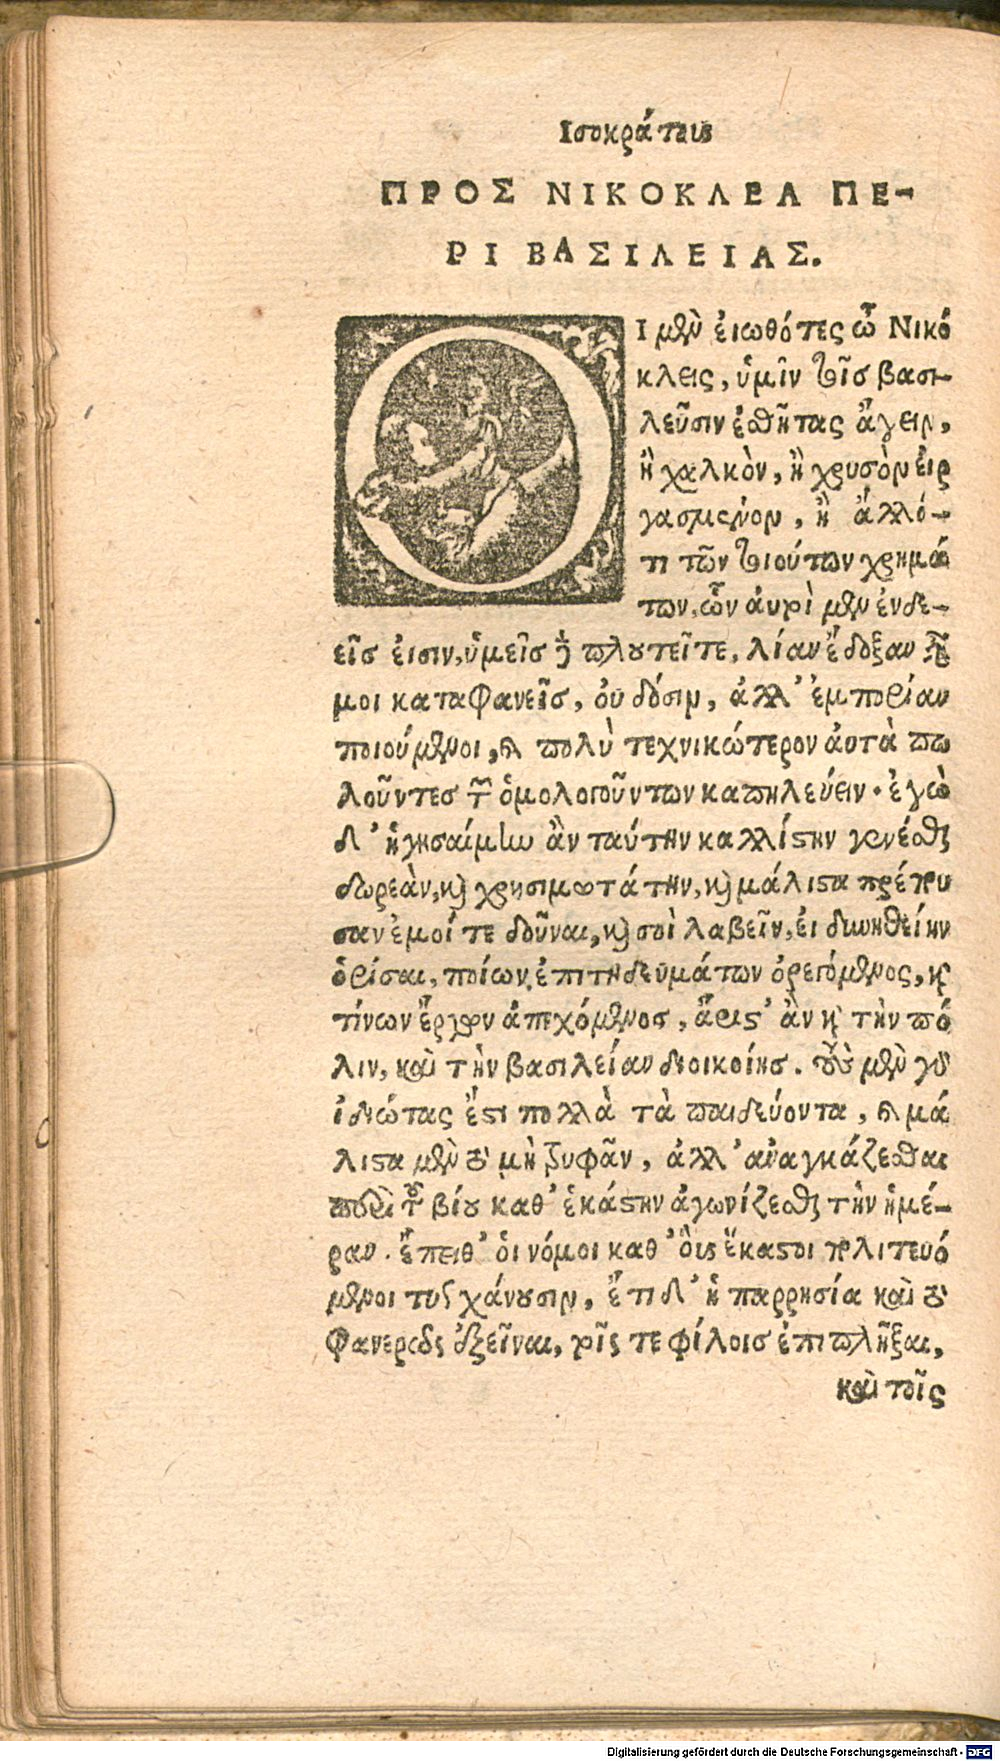 Ισοκράτους
ΠΡΟΣ ΝΙΚΟΚΛΕΑ ΠΕ-
ΡΙ ΒΑΣΙΛΕΙΑΣ.
ΟΙ μὲν ἐιωθότες ὦ Νικό
κλεις, ὑμῖν τοῖς βασι-
λεῦσιν ἐσθῆτας ἄγειν,
ἢ χαλκὸν, ἢ χρυσὸν ἐιρ
γασμένον, ἢ ἄλλό-
τι τῶν τοιούτων χρημά
των, ὧν ἀυτοὶ μὲν ἐνδε-
εῖς ἐισιν, ὑμεῖς δὲ πλουτεῖτε, λίαν ἔδοξαν εἶναί
μοι καταφανεῖς, ὀυ δόσιν, ἀλλ' ἐμπορίαν
ποιούμενοι, καὶ πολὺ τεχνικώτερον ἀυτὰ πω
λοῦντες τῶν ὁμολογούντων καπηλεύειν. ἐγὼ
δ' ἡγησαίμην ἂν ταύτην καλλίστην γενέσθαι
δωρεὰν, καὶ χρησιμωτάτην, καὶ μάλιστα πρέπου
σαν ἐμοί τε δοῦναι, καὶ σοὶ λαβεῖν, ἐι δυνηθείην
ὁρίσαι, ποίων ἐπιτηδευμάτων ὀρεγόμενος, καὶ
τίνων ἔργων ἀπεχόμενος, ἄριστ' ἂν καὶ τὴν πό
λιν, καὶ τὴν βασιλείαν διοικοίης. τοὺς μὲν γὰρ
ἰδιώτας ἔστι πολλὰ τὰ παιδεύοντα, καὶ μά
λιστα μὲν τὸ μὴ τρυφᾶν, ἀλλ' ἀναγκάζεσθαι
περὶ τοῦ βίου καθ' ἑκάστην ἀγωνίζεσθαι τὴν ἡμέ-
ραν. ἔπειθ' ὁι νόμοι καθ' ὃυς ἕκαστοι πολιτευό
μενοι τυγχάνουσιν, ἔτι δ' ἡ παρρησία καὶ τὸ
φανερῶς ἐξεῖναι, τοῖς τε φίλοις ἐπιπλῆξαι,
καὶ τοῖς
Digitalisierung gefördert durch die Deutsche Forschungsgemeinschaft - DFG